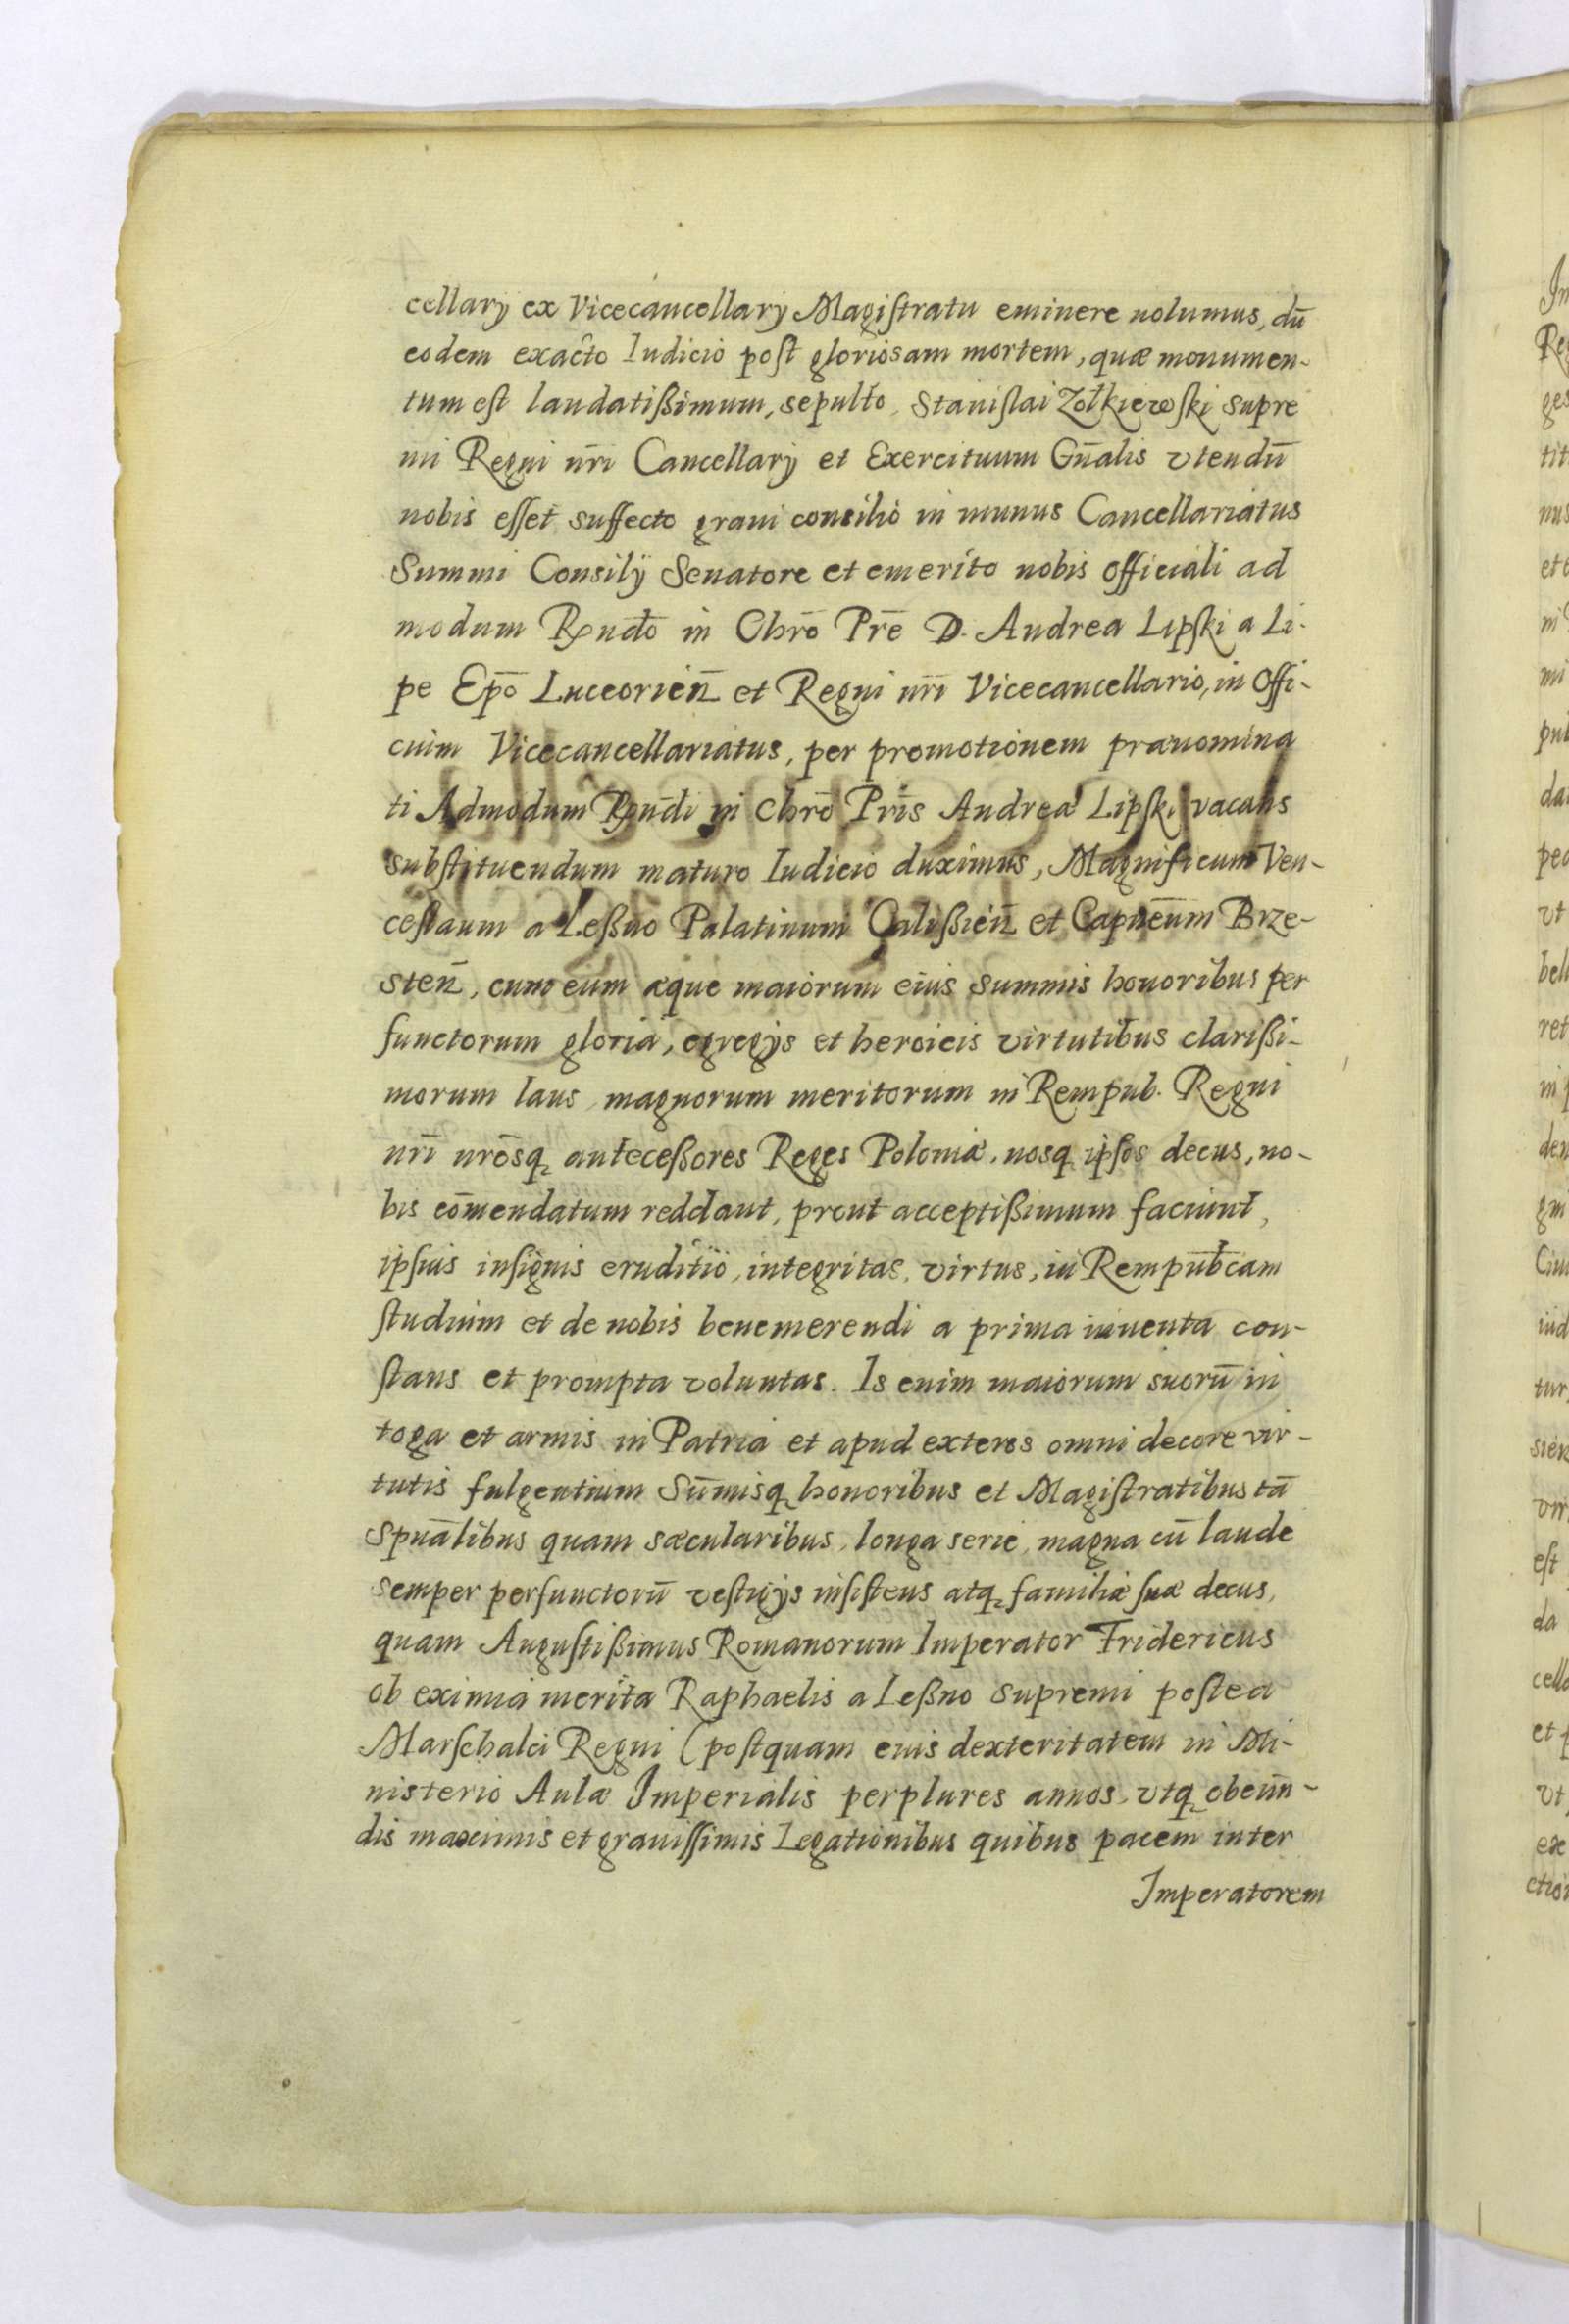 cellarÿ ex Vicecancellarÿ Magiſtratu eminere uolumus, dū
eodem exacto Iudicio poſt gloriosam mortem, quæ monumen-
tum eſt laudatißimum, sepulto, Staniſlai Zołkiewſki supre
mi Regni nr̄i Cancellarÿ et Exercituum Gn̄alis vtendū
nobis eſſet suffecto graui consilio in munus Cancellariatus
Summi Consilÿ Senatore et emerito nobis officiali ad
modum Rn̄do in Chrō Prē D. Andrea Lipſki a Li-
pe Epō Luceorien̄ et Regni nr̄i Vicecancellario, in Offi-
cium Vicecancellariatus, per promotionem prænomina
ti Admodum Rn̄di in Chrō Prīs Andreæ Lipſki vacans
subſtituendum maturo Iudicio duximus, Magnificum Ven-
ceſlaum a Leßno Palatinum Calißien̄ et Capnēum Brze-
sten̄, cum eum æque maiorum eius summis honoribus per
functorum gloria, egregÿs et heroicis virtutibus clarißi-
morum laus, magnorum meritorum in Rempub. Regni
nr̄i nrōsq anteceßores Reges Poloniæ, nosq ipſos decus, no-
bis cōmendatum reddant, prout acceptißimum faciunt,
ipſius inſignis eruditio, integritas, virtus, in Rempub̄cam
ſtudium et de nobis benemerendi a prima iuuenta con-
ſtans et prompta voluntas. Is enim maiorum suorū in
toga et armis in Patria et apud exteros omni decore vir-
tutis fulgentium Sūmisq honoribus et Magiſtratibus tā
Spuālibus quam sæcularibus, longa serie, magna cū laude
semper perfunctorū veſtigÿs inſiſtens atq familiæ ſuæ decus,
quam Auguſtißimus Romanorum Imperator Fridericus
ob eximia merita Raphaelis a Leßno Supremi poſtea
Marſchalci Regni (poſtquam eius dexteritatem in Mi-
nisterio Aulæ Imperialis per plures annos, vtq obeun-
dis maximis et grauiſſimis Legationibus quibus pacem inter
Imperatorem